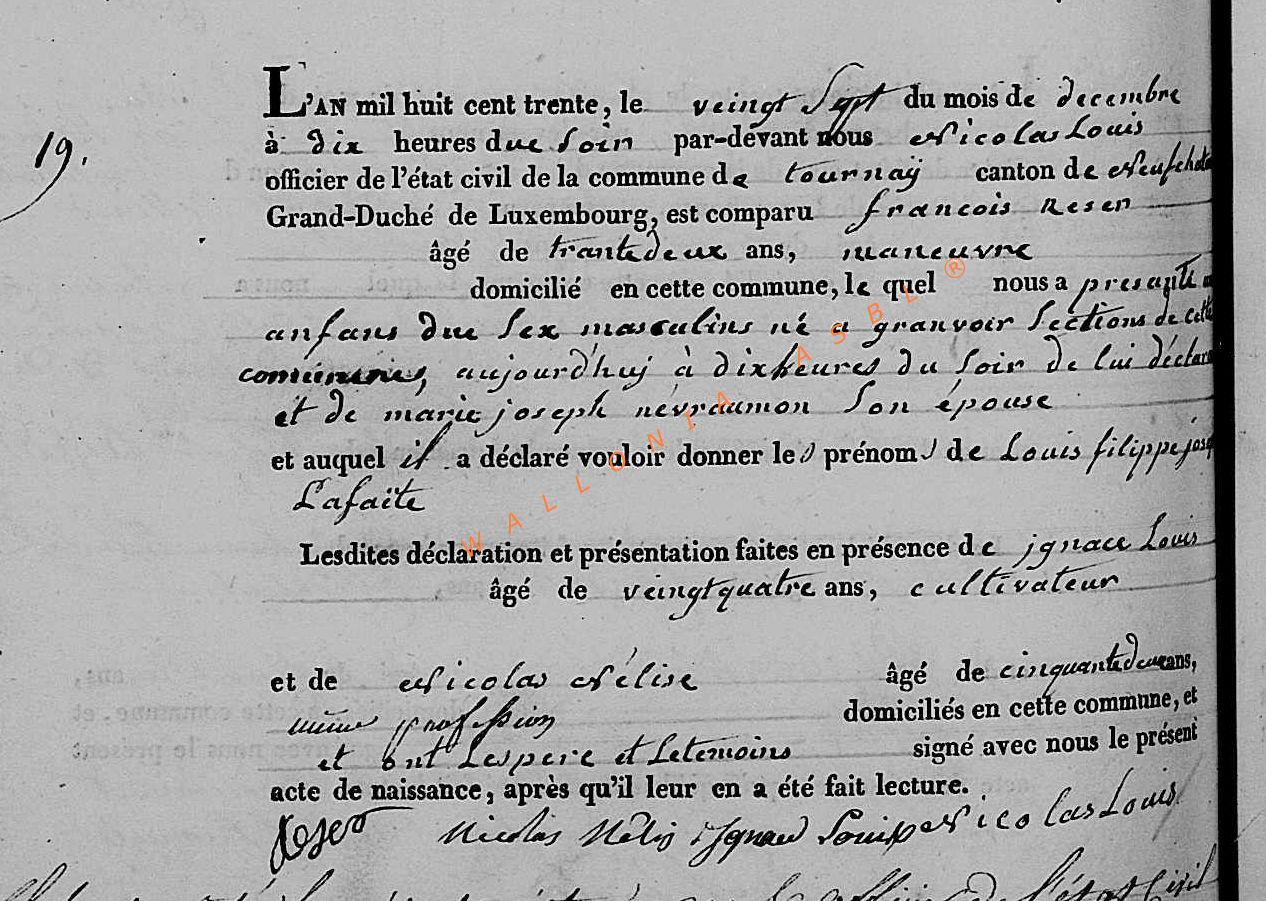 L'AN mil huit cent trente, le veingt Sept du mois de decembre
19.
à dix heures due Soir par-devant nous Nicolas Louis
officier de l'état civil de la commune de tournaÿ canton de Neufchat
Grand-Duché de Luxembourg, est comparu francois Reser
âgé de trantedeux ans, maneuvre
domicilié en cette commune, le quel nous a presanté
anfans due Sex masculins né a granvoir Sections de cette
communes, aujourd'huj à dix heures du Soir de lui déclar
et de marie joseph névraumon Son épouse
et auquel il a déclaré vouloir donner les prénoms de Louis filippe jos
Lafaite
Lesdites déclaration et présentation faites en présence de jgnace Louis
âgé de veingtquatre ans, cultivateur
et de Nicolas Nélise âgé de cinquantedeux ans,
même profession domiciliés en cette commune, et
et ont Lespere et Letemoins signé avec nous le présent
acte de naissance, après qu'il leur en a été fait lecture.
Reser Nicolas Nélis Ignace Louis Nicolas Louis
l'état Civil
WALLONIA ASBL ®